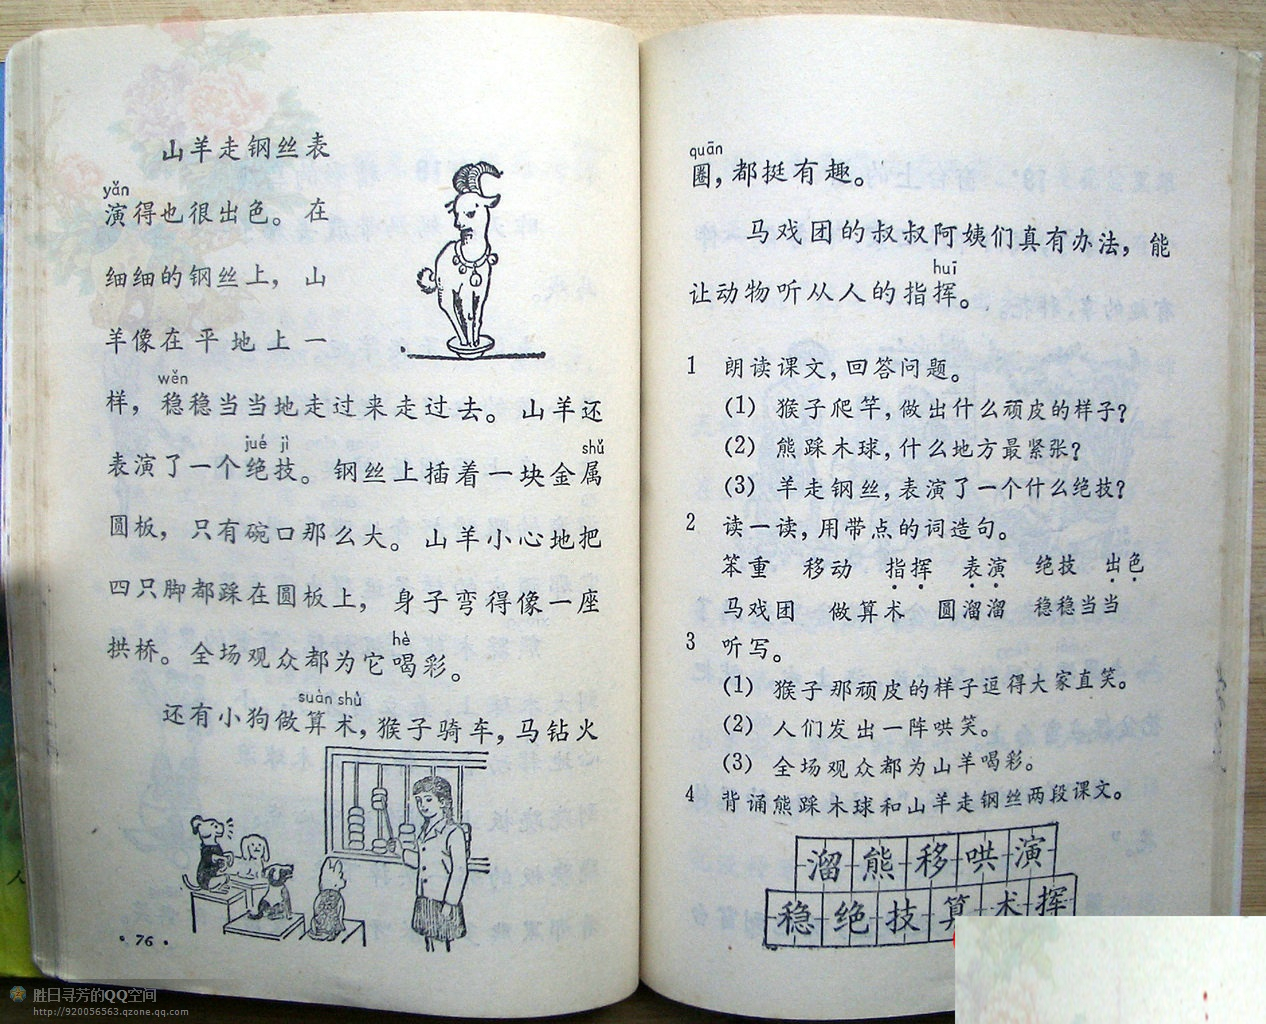 山羊走钢丝表
yǎn
演得也很出色。在
细细的钢丝上，山
羊像在平地上一
wěn
样，稳稳当当地走过来走过去。山羊还
jué jì shǔ
表演了一个绝技。钢丝上插着一块金属
圆板，只有碗口那么大。山羊小心地把
四只脚都踩在圆板上，身子弯得像一座
hè
拱桥。全场观众都为它喝彩。
suàn shù
还有小狗做算术，猴子骑车，马钻火
·76·
quān
圈，都挺有趣。
马戏团的叔叔阿姨们真有办法，能
huī
让动物听从人的指挥。
1 朗读课文，回答问题。
(1) 猴子爬竿，做出什么顽皮的样子？
(2) 熊踩木球，什么地方最紧张？
(3) 羊走钢丝，表演了一个什么绝技？
2 读一读，用带点的词造句。
笨重 移动 指挥 表演 绝技 出色
马戏团 做算术 圆溜溜 稳稳当当
3 听写。
(1) 猴子那顽皮的样子逗得大家直笑。
(2) 人们发出一阵哄笑。
(3) 全场观众都为山羊喝彩。
4 背诵熊踩木球和山羊走钢丝两段课文。
溜熊移哄演
稳绝技算术挥
胜日寻芳的QQ空间
http://920056563.qzone.qq.com